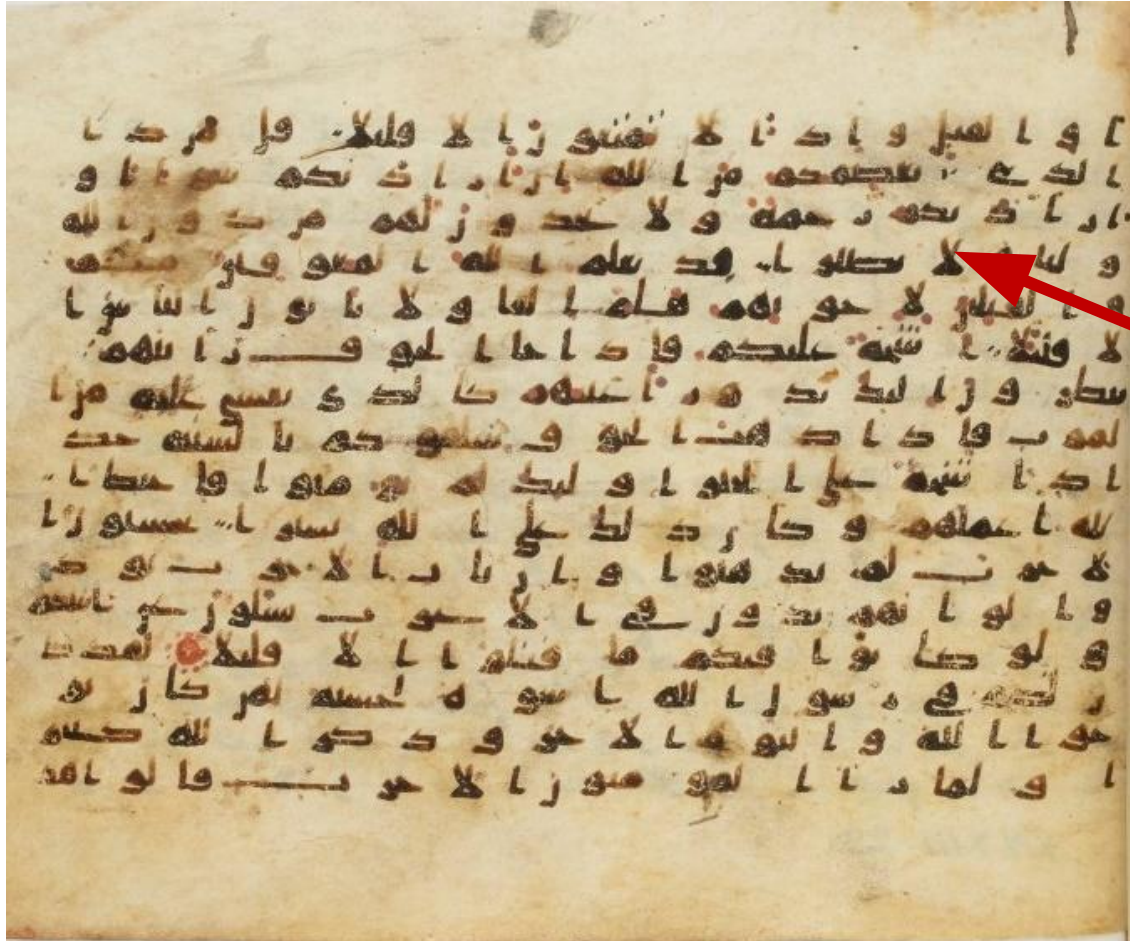 ا و القتل واذا لا تمتعون الا قليلا قل من ذا
الذي يعصمكم من الله ان اراد بكم سوا ا و
اراد بكم رحمة ولا يجدون لهم من دون الله
وليا ولا نصيرا قد يعلم الله المعوقين منكم
والقائلين لاخونهم هلم الينا ولا ياتون الباس ا
لا قليلا اشحة عليكم فاذا جا الخوف رايتهم
ينظرون اليك تدور اعينهم كالذي يغشى عليه من ا
لموت فاذا ذهب الخوف سلقوكم بالسنة حد
اد اشحة على الخير اوليك لم يومنوا فاحبط ا
لله اعملهم وكان ذلك على الله يسيرا يحسبون ا
لاحزاب لم يذهبوا وان يات الاحزاب يود
وا لو انهم بادون في الاعراب يسلون عن انبائكم
ولو كانوا فيكم ما قتلوا الا قليلا لقد كا
ن لكم في رسول الله اسوة حسنة لمن كان ير
جوا الله واليوم الاخر وذكر الله كثير
ا ولما را المومنون الاحزاب قالوا هذا